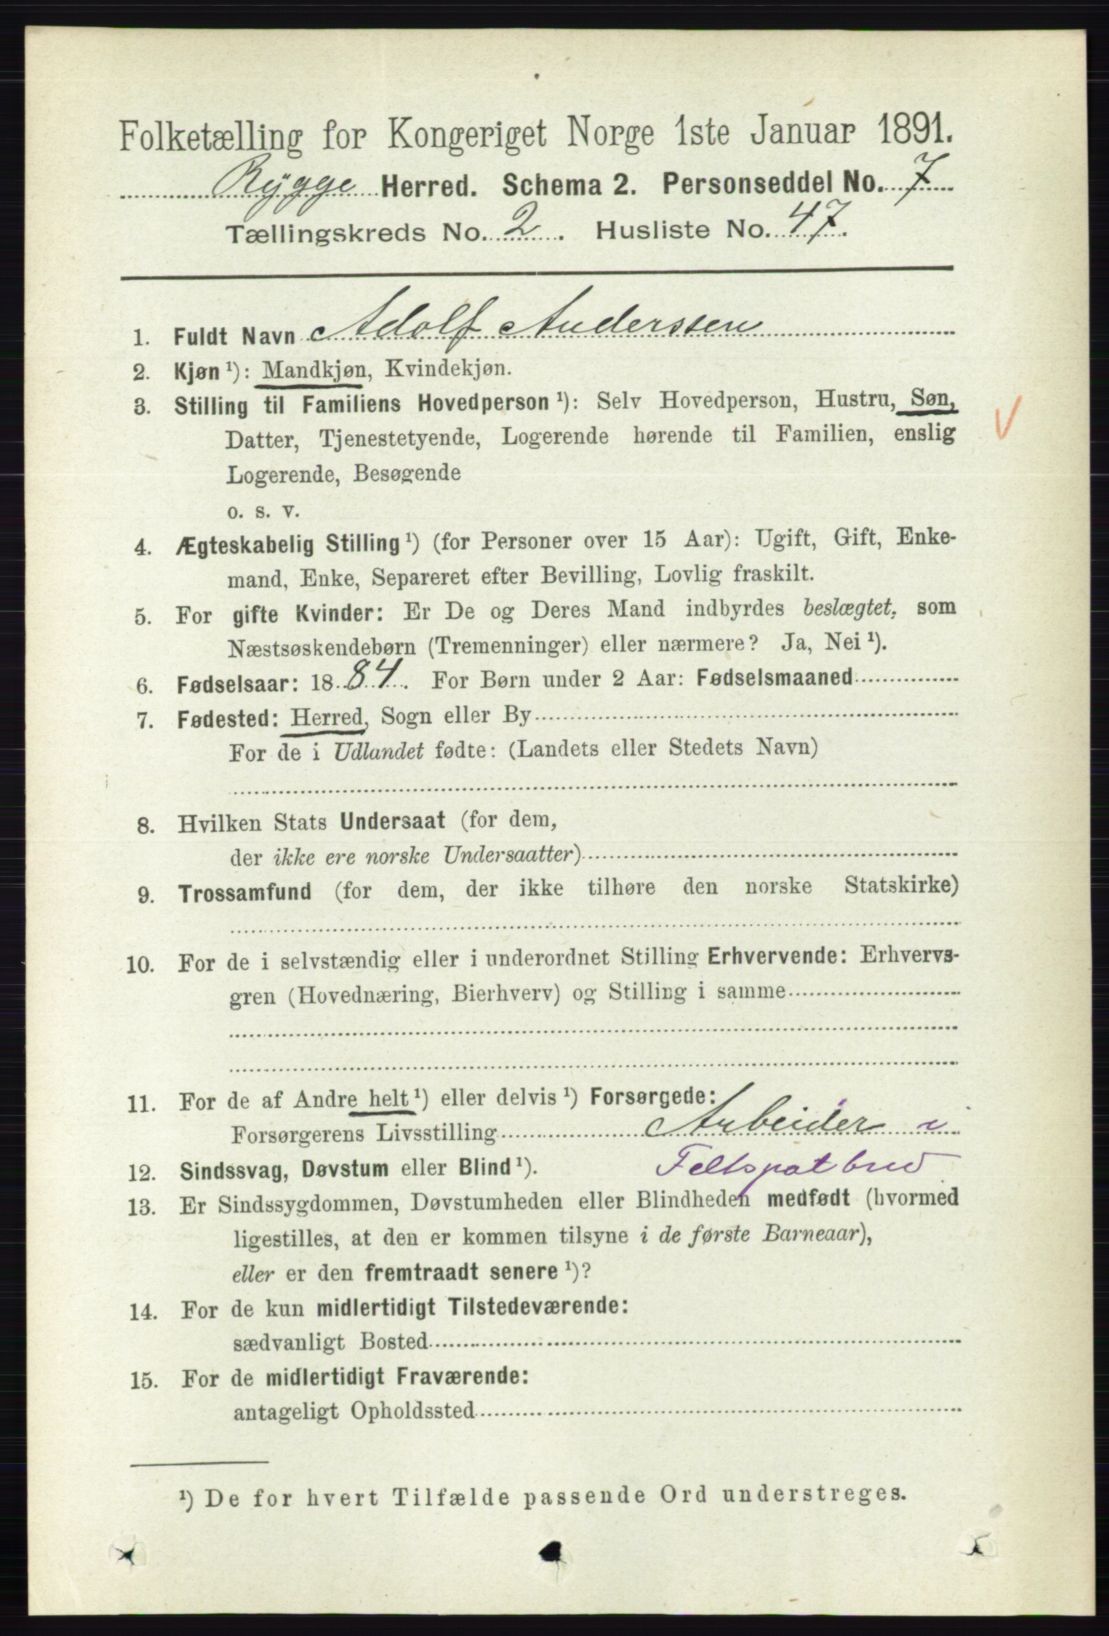 Folketælling for Kongeriget Norge 1ste Januar 1891.
Rygge Herred. Schema 2. Personseddel No. 7
Tællingskreds No. 2. Husliste No. 47.
1. Fuldt Navn Adolf Anderssen
2. Kjøn ¹): Mandkjøn, Kvindekjøn.
3. Stilling til Familiens Hovedperson ¹): Selv Hovedperson, Hustru, Søn,
Datter, Tjenestetyende, Logerende hørende til Familien, enslig
Logerende, Besøgende
o. s. v.
4. Ægteskabelig Stilling ¹) (for Personer over 15 Aar): Ugift, Gift, Enke-
mand, Enke, Separeret efter Bevilling, Lovlig fraskilt.
5. For gifte Kvinder: Er De og Deres Mand indbyrdes beslægtet, som
Næstsøskendebørn (Tremenninger) eller nærmere? Ja, Nei ¹).
6. Fødselsaar: 1884. For Børn under 2 Aar: Fødselsmaaned
7. Fødested: Herred, Sogn eller By
For de i Udlandet fødte: (Landets eller Stedets Navn)
8. Hvilken Stats Undersaat (for dem,
der ikke ere norske Undersaatter)
9. Trossamfund (for dem, der ikke tilhøre den norske Statskirke)
10. For de i selvstændig eller i underordnet Stilling Erhvervende: Erhvervs-
gren (Hovednæring, Bierhverv) og Stilling i samme
11. For de af Andre helt ¹) eller delvis ¹) Forsørgede:
Forsørgerens Livsstilling Arbeider i
12. Sindssvag, Døvstum eller Blind ¹). Feltspatbrud
13. Er Sindssygdommen, Døvstumheden eller Blindheden medfødt (hvormed
ligestilles, at den er kommen tilsyne i de første Barneaar),
eller er den fremtraadt senere ¹)?
14. For de kun midlertidigt Tilstedeværende:
sædvanligt Bosted
15. For de midlertidigt Fraværende:
antageligt Opholdssted
¹) De for hvert Tilfælde passende Ord understreges.